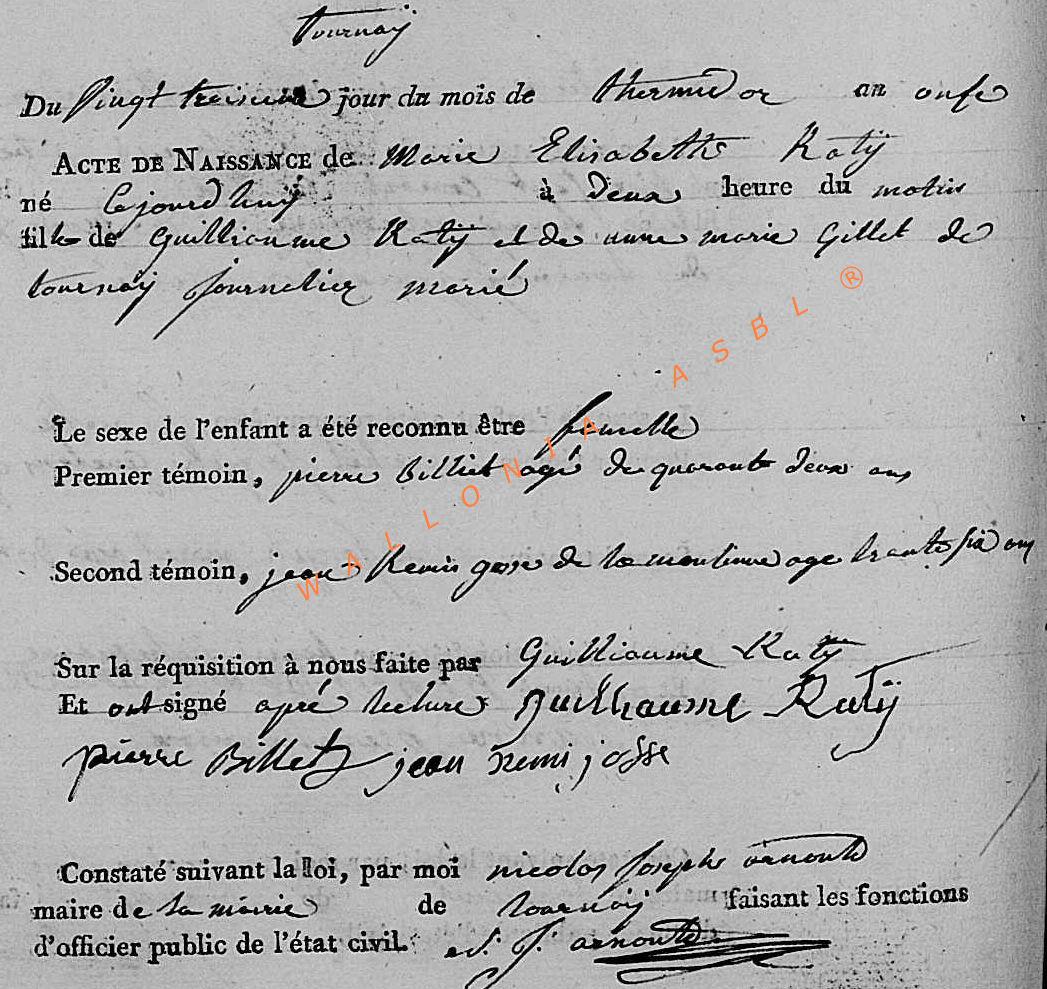 tournay
Du Vingt troisieme jour du mois de thermidor an onse
ACTE DE NAISSANCE de Marie Elisabette Ratÿ
né Cejourdhuy à Deux heure du matin
fille de Guilliaume Ratÿ et de anne marie Gillet de
tournaÿ journelier marié
Le sexe de l'enfant a été reconnu être femelle
Premier témoin, pierre Billiet agé de quarante deux ans
Second témoin, jean Remis gosse de age trante six ans
Sur la réquisition à nous faite par Guilliaume Ratÿ
Et ont signé apré lecture guillhaume Ratÿ
pierre Billet jean remi josse
Constaté suivant la loi, par moi nicolas joseph arnould
maire de la mairie de tournaÿ faisant les fonctions
d'officier public de l'état civil. n. j. arnould
WALLONIA ASBL ®